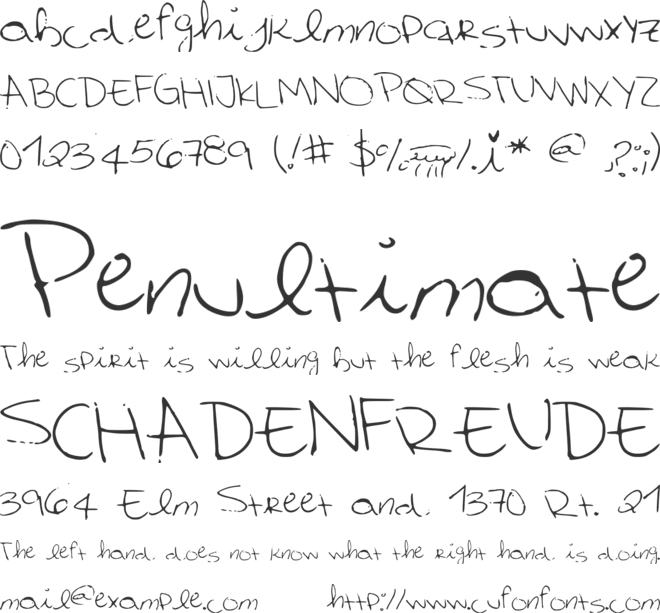 abcdefghijklmnopqrstuvwxyz
ABCDEFGHIJKLMNOPQRSTUVWXYZ
0123456789 (!# $%/.i* @ ?:;)
Penultimate
The spirit is willing but the flesh is weak
SCHADENFREUDE
3964 Elm Street and 1370 Rt. 21
The left hand does not know what the right hand is doing.
mail@example.com http://www.cufonfonts.com